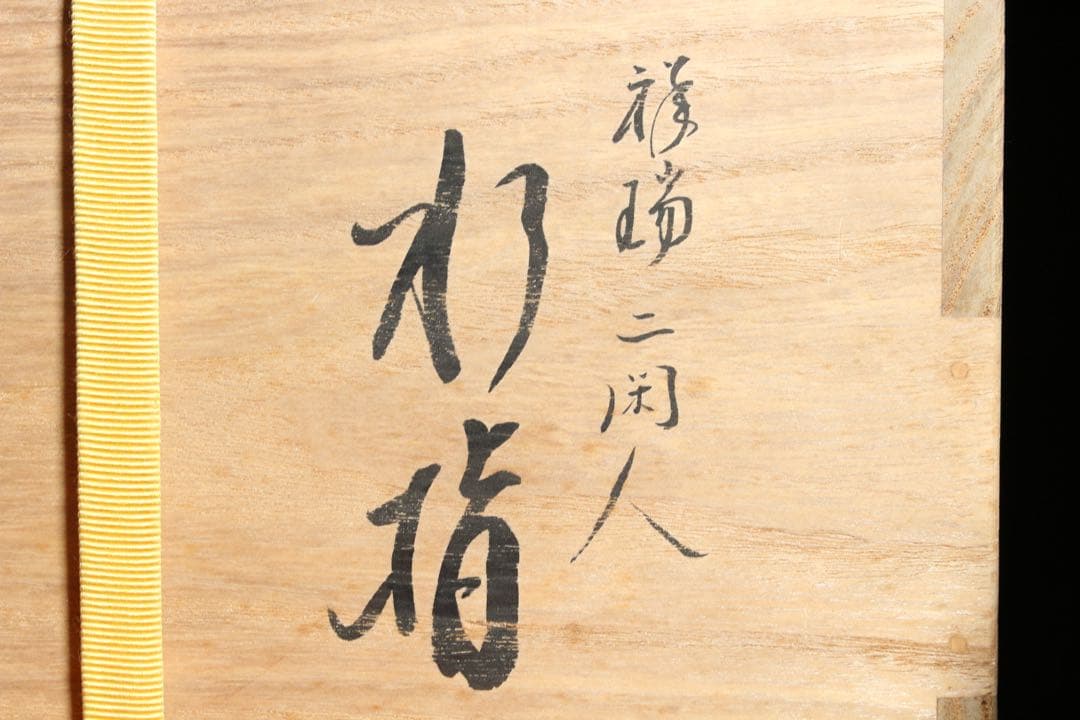 祥瑞 二閑人
水指